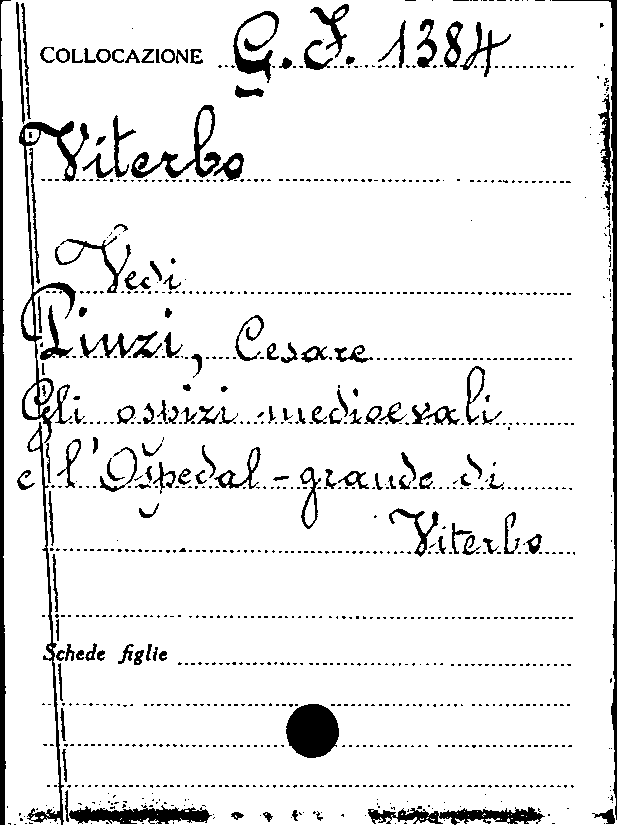 COLLOCAZIONE G. F. 1384
Viterbo
Vedi
Pinzi, Cesare
Gli ospizi medioevali
e l'Ospedal-grande di
Viterbo
Schede figlie